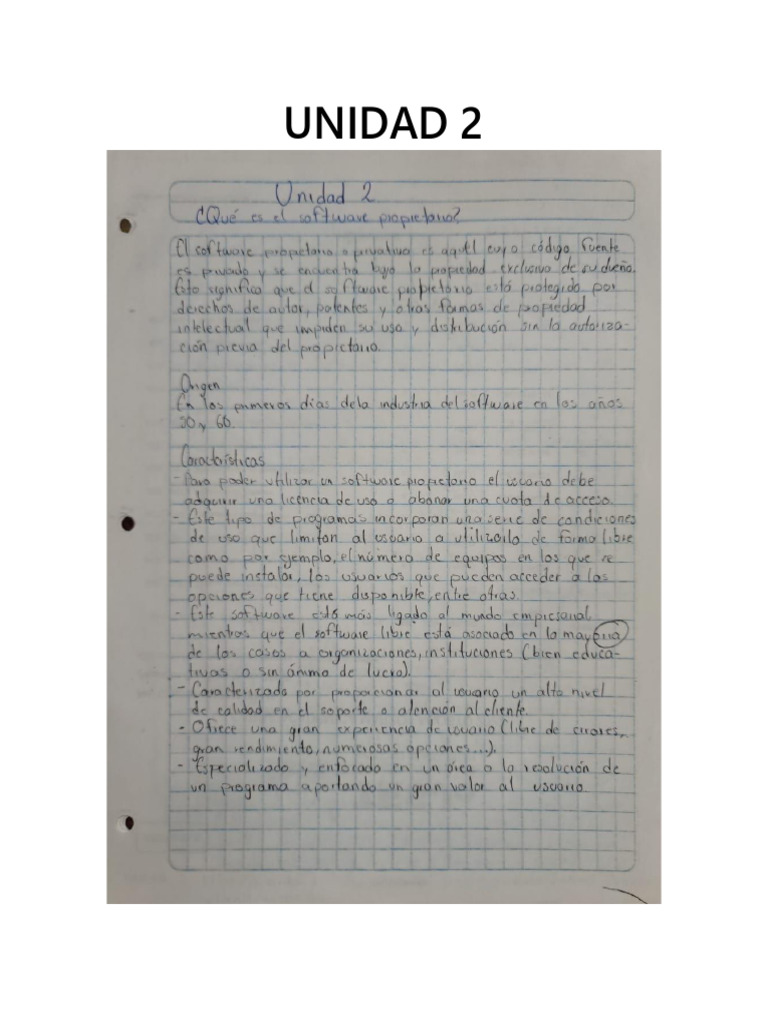 UNIDAD 2
Unidad 2
¿Qué es el software propietario?
El software propietario o privativo es aquél cuyo código fuente
es privado y se encuentra bajo la propiedad exclusiva de su dueño.
Esto significa que el software propietario está protegido por
derechos de autor, patentes y otras formas de propiedad
intelectual que impiden su uso y distribución sin la autoriza-
ción previa del propietario.
Origen
En los primeros días de la industria del software en los años
50 y 60.
Características
- Para poder utilizar un software propietario el usuario debe
adquirir una licencia de uso o abonar una cuota de acceso.
- Este tipo de programas incorporan una serie de condiciones
de uso que limitan al usuario a utilizarlo de forma libre
como por ejemplo, el número de equipos en los que se
puede instalar, los usuarios que pueden acceder a las
opciones que tiene disponible, entre otras.
- Este software está más ligado al mundo empresarial
mientras que el software libre está asociado en la mayoria
de los casos a organizaciones, instituciones (bien educa-
tivas o sin ánimo de lucro).
- Caracterizado por proporcionar al usuario un alto nivel
de calidad en el soporte o atención al cliente.
- Ofrece una gran experiencia de usuario (libre de errores,
gran rendimiento, numerosas opciones...).
- Especializado y enfocado en un área o la resolución de
un programa aportando un gran valor al usuario.